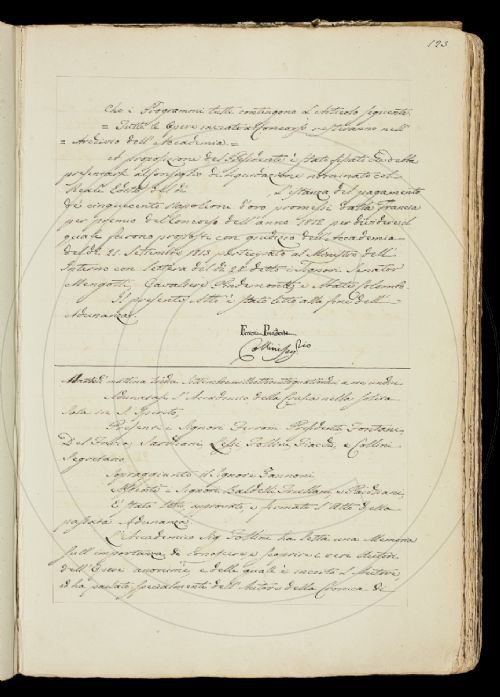 123
che i Programmi tutti contengano l'Articolo seguente
= Tutte le Opere inviate al Concorso resteranno nell'
= Archivio dell'Accademia =
A proposizione del Presidente è stato fissato che si
presenti al Consiglio di Liquidazione nominato col
Reale Editto del dì l'istanza del pagamento
di cinquecento Napoleoni d'oro promessi dalla Francia
per premio del Concorso dell'anno 1812 per dividersi
quali furono proposti con giudizio dell'Accademia
del dì 21 Settembre 1813 partecipato al Ministro dell'
Interno con Lettera del dì 22 detto i Signori Senator
Mengotti, Cavaliere Pindemonte, e Abate Colombo.
Il presente Atto è stato letto alla fine dell'
Adunanza.
Ferroni Presidente
Collini Seg.rio
Martedì mattina tredici Settembre milleottocentoquattordici a ore undici
Adunatasi l'Accademia della Crusca nella solita
Sala in S. Spirito,
Presenti i Signori Ferroni Presidente, Fontani,
Del Furia, Sarchiani, Lessi, Follini, Fiacchi, e Collini
Segretario
Sopraggiunto il Signore Zannoni
Assenti i Signori Baldelli, Niccolini, e
È stato letto, approvato, e firmato l'Atto della
passata Adunanza
L'Accademico Sig. Follini ha letta una Memoria
sull'importanza di conoscere e scoprire i veri Autori
dell'Opere anonime, e delle quali è incerto l'Autore,
ed ha parlato specialmente dell'Autore della Cronica di